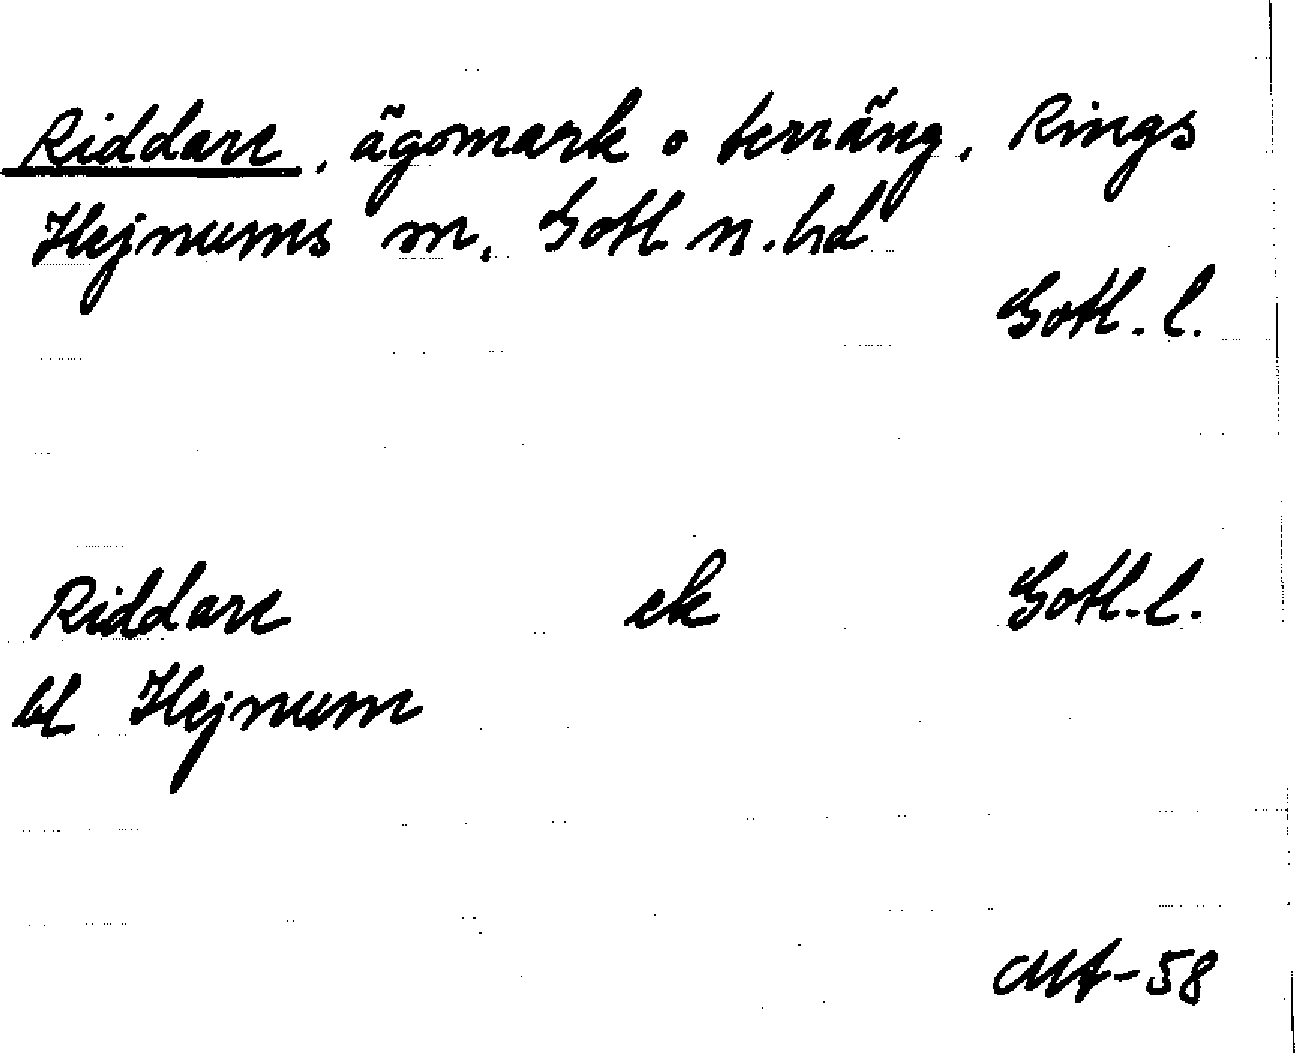 Riddare, ägomark o terräng, Rings
Hejnums m, Gotl n. hd
Gotl. l.
Riddare ek Gotl. l.
bl Hejnum
MA-58